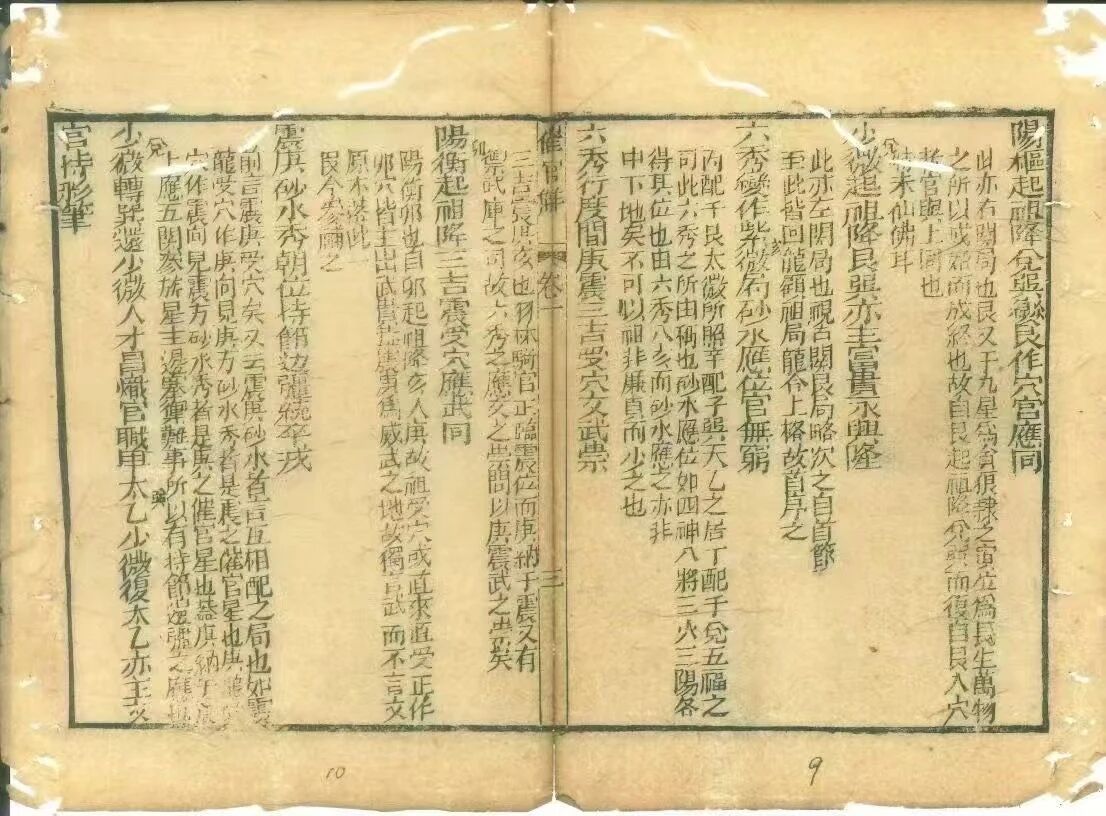 陽樞起祖降兌巽變艮作穴官應同
此亦右關局也艮又于九星爲貪狼隷之寅位爲民生萬物
之所以成始而成終也故自艮起祖降兌巽而復自艮入穴
者官與上同也
結末仙佛耳
少微起祖降艮巽亦主富貴永興隆
兌
此亦左關局也視右關艮局略次之自首節
至此皆回龍顧祖局龍合上格故首序之
六秀變作紫微局砂水應位官無窮
亥
丙配于艮太微所照辛配于巽天乙之居丁配于兌五福之
司此六秀之所由稱也砂水應位如四神八將三火三陽各
得其位也由六秀入亥而砂水應之亦非
中下地矣不可以祖非廉貞而少之也
六秀行度間庚震三吉受穴文武崇
催官解
卷一
三
三吉震庚亥也羽林騎官正臨震位而庚納于震又有
武庫之司故六秀之應文之間以庚震武之矣
陽衡起祖降三吉震受穴應武同
卯
陽衡卯也自卯起祖降亥入庚故祖受穴或直來直受正作
卯穴皆主出武貴葢庚爲威武之地故獨言武而不言文
原本落此
艮今參補之
震庚砂水秀朝位持節邊疆統卒戎
前言震庚受穴矣又云震庚砂水者言互相配之局也如震
龍受穴作庚向見庚方砂水秀者是震之催官星也庚龍
穴作震向見震方砂水秀者是庚之催官星也葢庚納于震
上應五關參旗星主邊塞禦難事所以有持節邊疆之應
少微轉巽還少微人才昌熾官職卑太乙少微復太乙亦主文
兌
官持彤筆